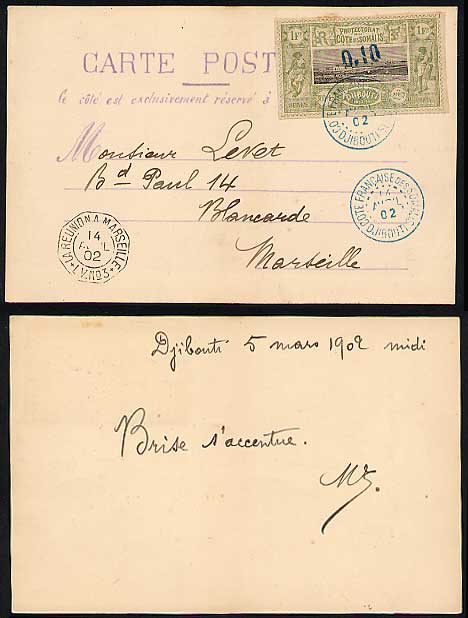 1F
PROTECTORAT
CÔTE DES SOMALIS
1F
0,10
DJIBOUTI
CARTE POST
le côté est exclusivement réservé à
CÔTE FRANÇAISE DES SOMALIS
DJIBOUTI
02
Monsieur Levet
Bd Paul 14
Blancarde
Marseille
CÔTE FRANÇAISE DES SOMALIS
DJIBOUTI
14
AVRIL
02
LA REUNION A MARSEILLE
14
02
L.V. N°3
Djibouti 5 mars 1902 midi
Brise s'accentue.